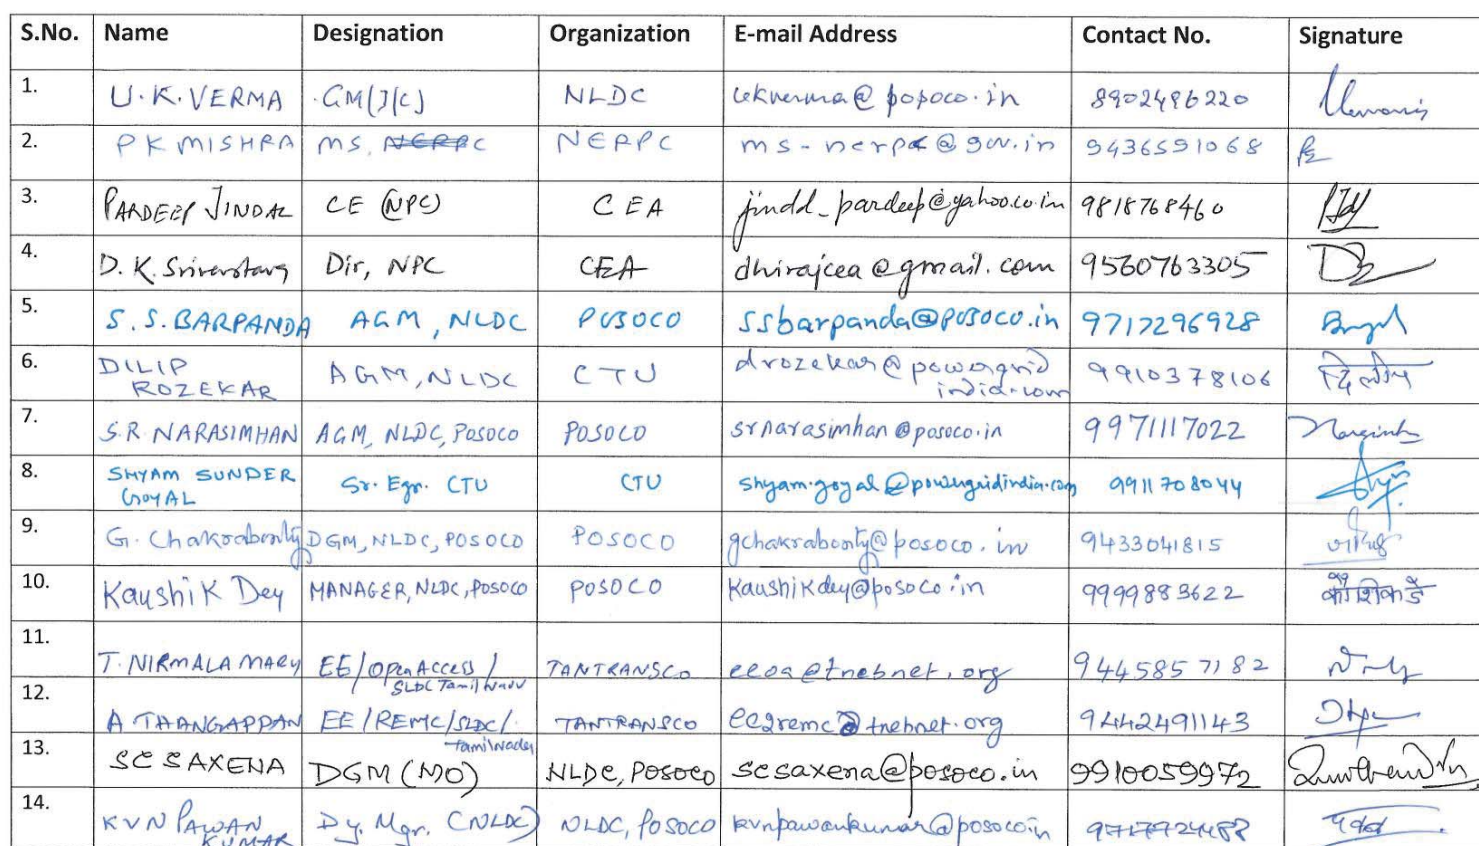 S.No. Name Designation Organization E-mail Address Contact No. Signature
1. U.K.VERMA GM(I/C) NLDC ukverma@posoco.in 8902496220
2. PK MISHRA MS, NERPC NERPC ms-nerpc@gov.in 9436591068
3. PARDEEP JINDAL CE (NPC) CEA jindal_pardeep@yahoo.co.in 9818768460
4. D.K. Srivastava Dir, NPC CEA dhirajcea@gmail.com 9560763305
5. S.S.BARPANDA AGM, NLDC POSOCO ssbarpanda@posoco.in 9717296928
6. DILIP ROZEKAR AGM, NLDC CTU drozekar@powergrid 9910378106 दिलीप
india.com
7. S.R. NARASIMHAN AGM, NLDC, POSOCO POSOCO srnarasimhan@posoco.in 9971117022
8. SHYAM SUNDER GOYAL Sr. Egr. CTU CTU shyam.goyal@powergridindia.com 9911708044
9. G. Chakraborty DGM, NLDC, POSOCO POSOCO gchakraborty@posoco.in 9433041815
10. Kaushik Dey MANAGER, NLDC, POSOCO POSOCO Kaushikdey@posoco.in 9999883622 कौशिक डे
11. T. NIRMALA MARY EE/Open Access/ TANTRANSCO eeoa@tnebnet.org 9445857182
SLDC Tamil Nadu
12. A THANGAPPAN EE/REMC/SLDC/ TANTRANSCO ee2remc@tnebnet.org 9442491143
Tamilnadu
13. SC SAXENA DGM (MO) NLDC, POSOCO scsaxena@posoco.in 9910059972
14. KVN PAWAN KUMAR Dy. Mgr. (NLDC) NLDC, POSOCO kvnpawankumar@posoco.in 9717924488